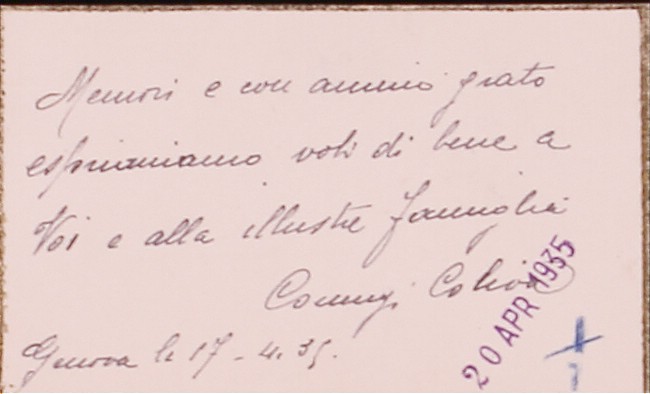 Memori e con animo grato
esprimiamo voti di bene a
Voi e alla illustre famiglia
Coniugi
Genova li 17-4.35.
20 APR 1935